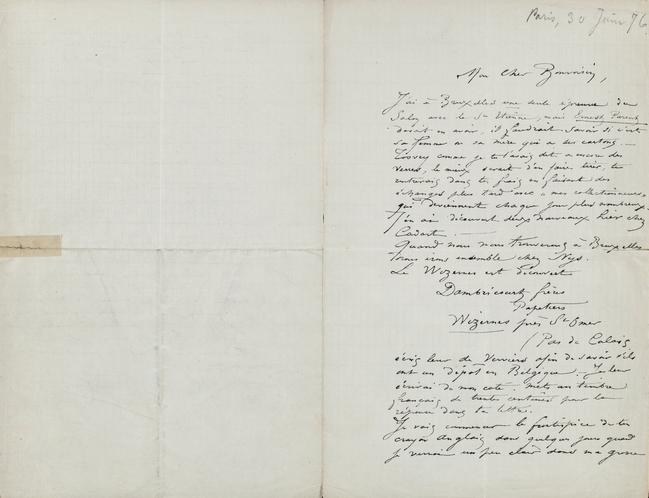 Paris, 30 Juin 76
Mon cher Bonvoisin,
J'ai à Bruxelles une seule épreuve du
Salon avec le St Etienne, mais Ernest Parent
devait en avoir, il faudrait savoir si c'est
sa femme ou sa mère qui a ses cartons. —
comme je te l'avais dit a encore des
le mieux serait d'en faire tirer, tu
rentrerais dans tes frais en faisant des
échanges plus tard avec mes collectionneurs
qui deviennent chaque jour plus nombreux.
J'en ai découvert deux nouveaux hier chez
Cadart. —
Quand nous nous trouverons à Bruxelles
nous irons ensemble chez Nys.
Le Wizernes est découvert
Dambricourt frères
Papetiers
Wizernes près St Omer
(Pas de Calais
écris leur de Verviers afin de savoir s'ils
ont un dépôt en Belgique. — Je leur
écrirai de mon coté. mets un timbre
français de trente centimes pour la
réponse dans ta lettre.
Je vais commencer le frontispice de tes
crayon Anglais dans quelques jours quand
je verrai un peu clair dans ma grosse